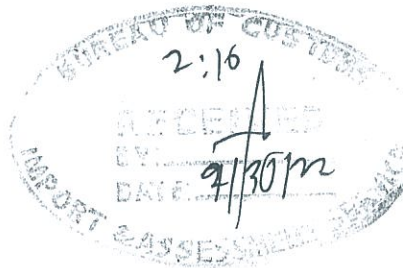 BUREAU OF CUSTOMS
2:16
RECEIVED
BY:
DATE:
IMPORT & ASSESSMENT SERVICE